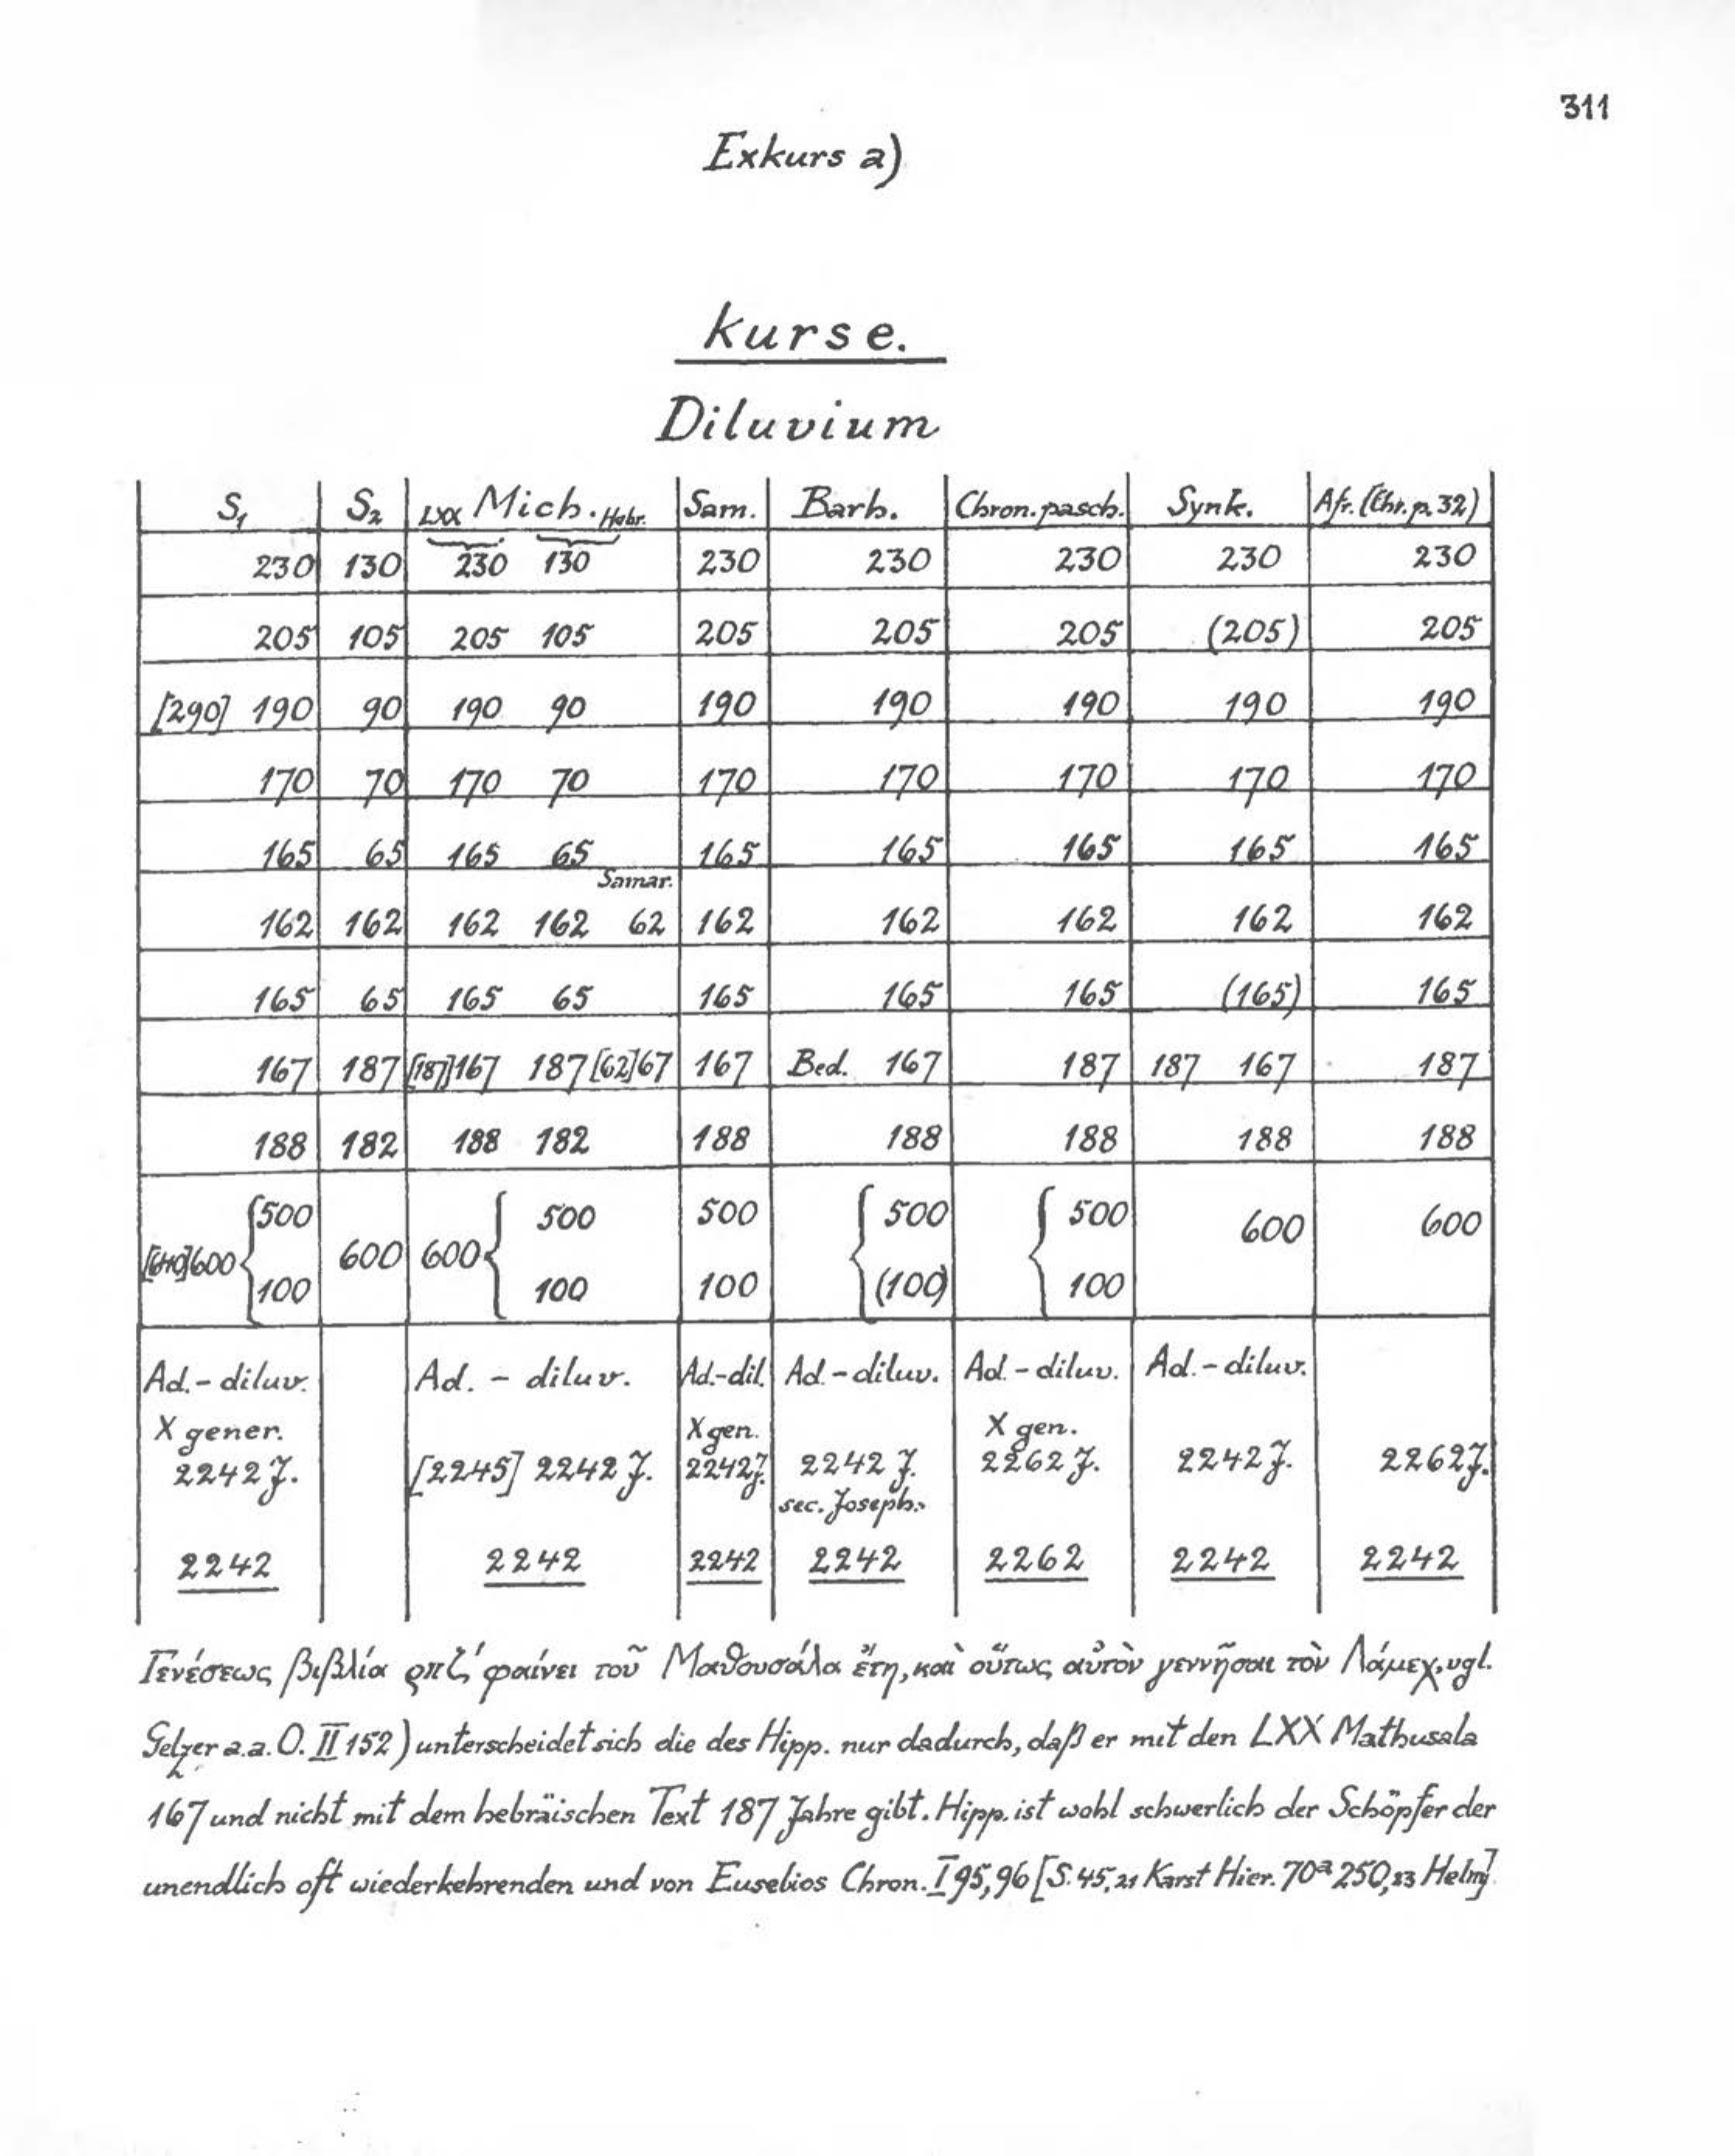 311
Exkurs a)
kurse.
Diluvium
S₁ S₂ LXX Mich. Hebr. Sam. Barb. Chron. pasch. Synk. Afr. (Chr. p. 32)
230 130 230 130 230 230 230 230 230
205 105 205 105 205 205 205 (205) 205
[290] 190 90 190 90 190 190 190 190 190
170 70 170 70 170 170 170 170 170
165 65 165 65 165 165 165 165 165
Samar.
162 162 162 162 62 162 162 162 162 162
165 65 165 65 165 165 165 (165) 165
167 187 [187] 167 187 [62] 67 167 Bed. 167 187 187 167 187
188 182 188 182 188 188 188 188 188
500 500 500 500 500
[640] 600 600 600 600 600
100 100 100 (100) 100
Ad.-diluv. Ad. - diluv. Ad.-dil. Ad.-diluv. Ad.-diluv. Ad.-diluv.
X gener. X gen. X gen.
2242 J. [2245] 2242 J. 2242 J. 2242 J. 2262 J. 2242 J. 2262 J.
sec. Joseph.
2242 2242 2242 2242 2262 2242 2242
Γενέσεως βιβλία ϱπζ´ φαίνει τοῦ Μαθουσάλα ἔτη, καὶ οὕτως αὐτὸν γεννῆσαι τὸν Λάμεχ, vgl.
Gelzer a.a.O. II 152) unterscheidet sich die des Hipp. nur dadurch, daß er mit den LXX Mathusala
167 und nicht mit dem hebräischen Text 187 Jahre gibt. Hipp. ist wohl schwerlich der Schöpfer der
unendlich oft wiederkehrenden und von Eusebios Chron. I 95,96 [S. 45,21 Karst Hier. 70ᵃ 250,23 Helm]